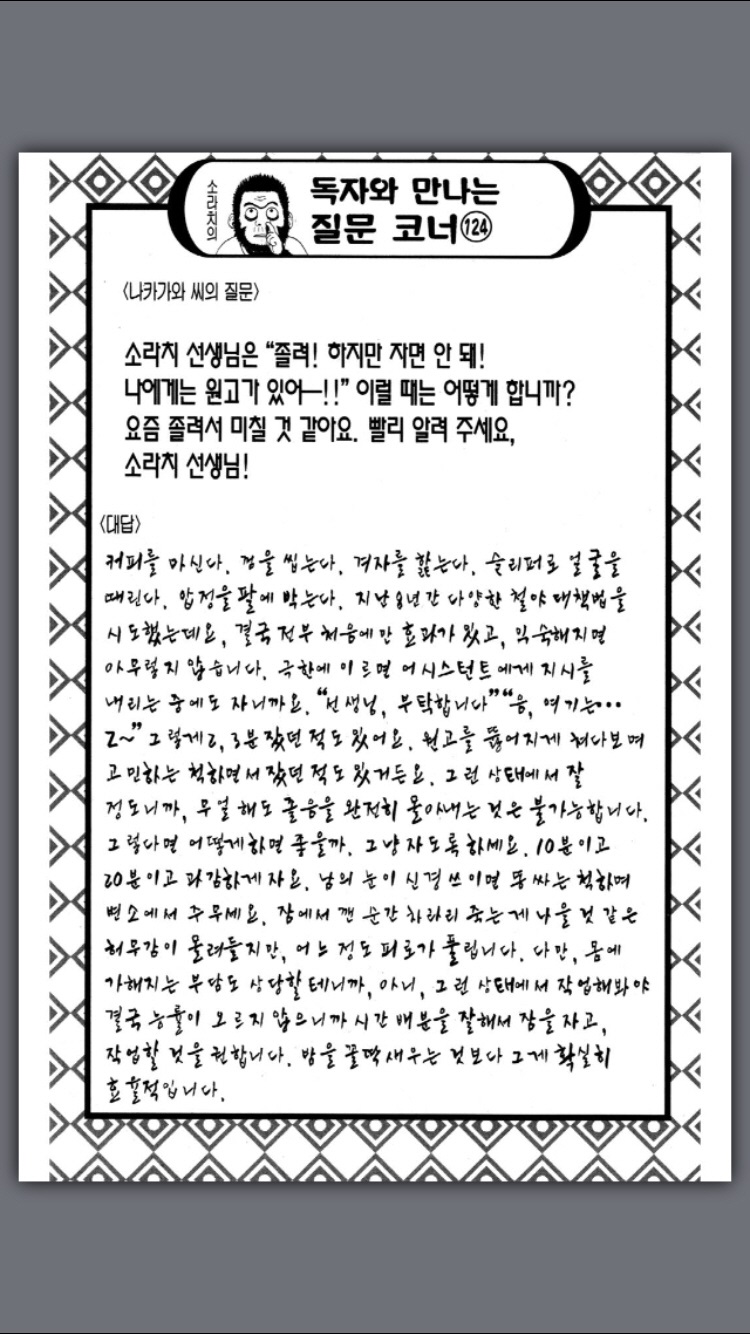 소라치의
독자와 만나는
질문 코너 124
〈나카가와 씨의 질문〉
소라치 선생님은 “졸려! 하지만 자면 안 돼!
나에게는 원고가 있어—!!” 이럴 때는 어떻게 합니까?
요즘 졸려서 미칠 것 같아요. 빨리 알려 주세요,
소라치 선생님!
〈대답〉
커피를 마신다. 껌을 씹는다. 겨자를 핥는다. 슬리퍼로 얼굴을
때린다. 압정을 팔에 박는다. 지난 8년간 다양한 철야 대책법을
시도했는데요, 결국 전부 처음에만 효과가 있고, 익숙해지면
아무렇지 않습니다. 극한에 이르면 어시스턴트에게 지시를
내리는 중에도 자니까요. “선생님, 부탁합니다” “응, 여기는…
Z~” 그렇게 2, 3분 잤던 적도 있어요. 원고를 뚫어지게 쳐다보며
고민하는 척하면서 잤던 적도 있거든요. 그런 상태에서 잘
정도니까, 무얼 해도 졸음을 완전히 몰아내는 것은 불가능합니다.
그렇다면 어떻게 하면 좋을까. 그냥 자도록 하세요. 10분이고
20분이고 과감하게 자요. 남의 눈이 신경 쓰이면 똥 싸는 척하며
변소에서 주무세요. 잠에서 깬 순간 차라리 죽는 게 나을 것 같은
허무감이 몰려들지만, 어느 정도 피로가 풀립니다. 다만, 몸에
가해지는 부담도 상당할 테니까, 아니, 그런 상태에서 작업해봐야
결국 능률이 오르지 않으니까 시간 배분을 잘해서 잠을 자고,
작업할 것을 권합니다. 밤을 꼴딱 새우는 것보다 그게 확실히
효율적입니다.